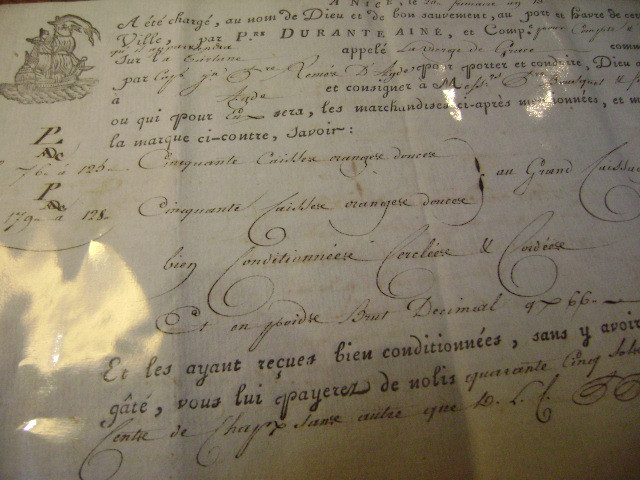 A NICE, le
A été chargé, au nom de Dieu et de bon sauvement, au port et havre de cette
Ville, par P.re DURANTE AINÉ, et Comp.e pour Compte
Sur la Tartane appelé La vierge de Grace comm
par Cap.e J.n Remés D'Agde pour porter et conduire, Dieu
à Agde et consigner à Mess.rs
ou qui pour Eux sera, les marchandises ci-après mentionnées, et m
la marque ci-contre, Savoir:
P
ADC
76 à 125 Cinquante Caisses oranges douces
au Grand Caissa
P
179 à 128 Cinquante Caisses oranges douces
bien Conditionnées Cerclées & Cordées
Et en poids Brut Decimal 4766
Et les ayant reçues bien conditionnées, sans y avoir
gâté, vous lui payerez de nolis quarante Cinq Sols
Cente de Chap.x sans autre que